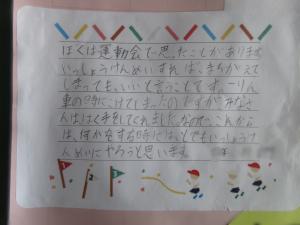 ぼくは運動会で思ったことがあります
いっしょうけんめいすれば、まちがえて
しまっても、いいと言うことです。一りん
車の時にこけてしまったのですがみなさ
んははく手をしてくれました。なのでこれから
は、何かをする時にはとてもいっしょうけ
んめいにやろうと思います。
1 2 3